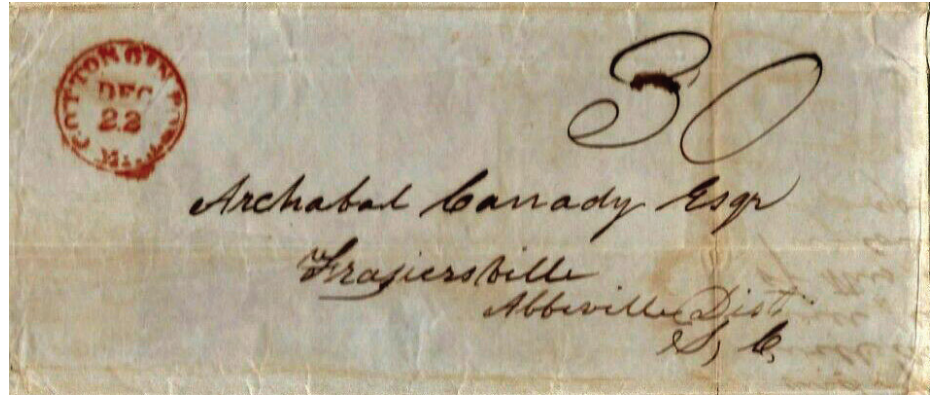 COTTON GIN PORT
DEC
22
Mi.
30
Archabal Canady Esqr
Frasiersville
Abbeville Dist
S, C,